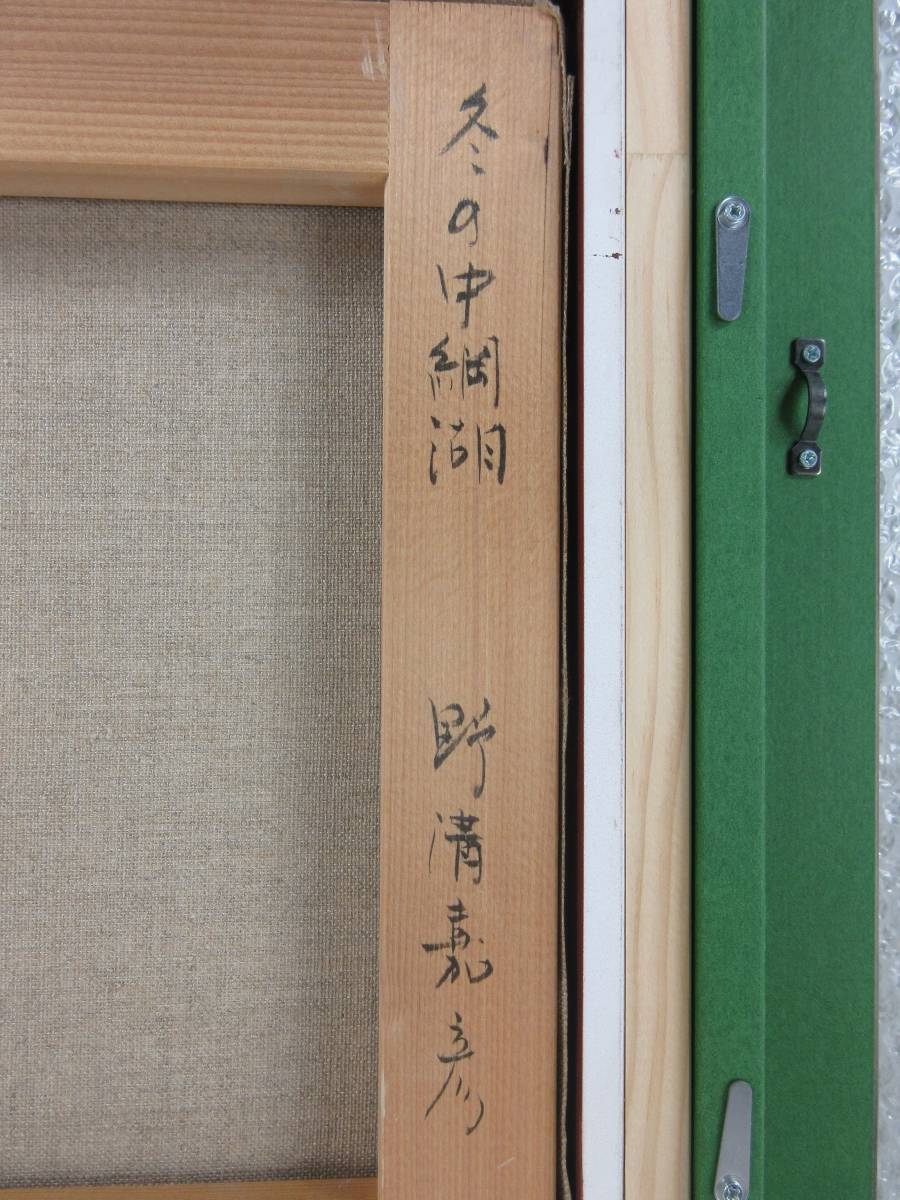 冬の中綱湖
野溝嘉彦